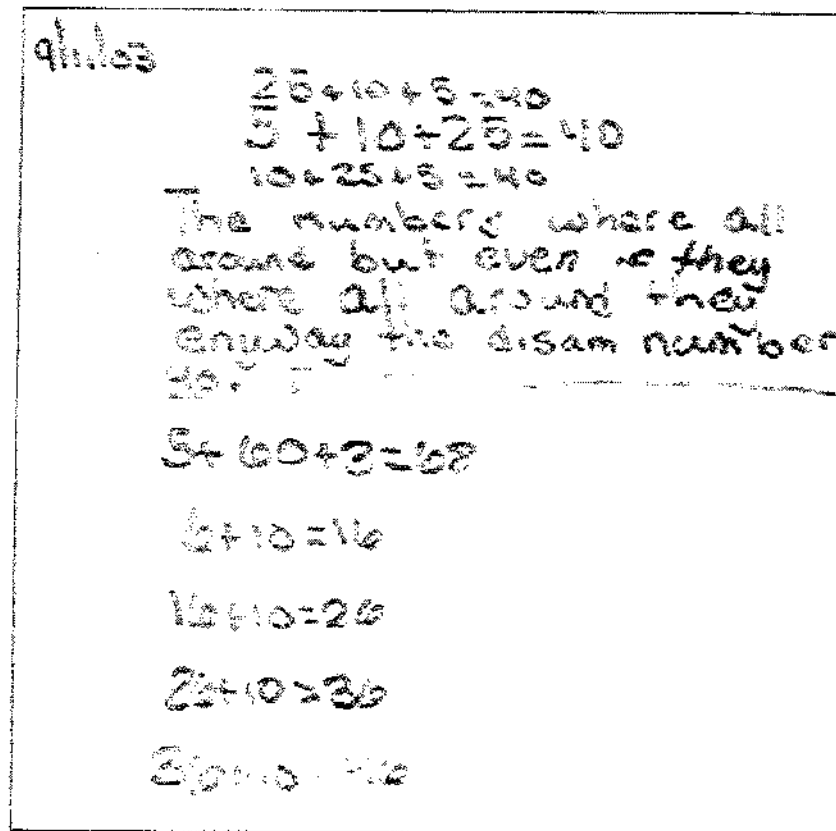 25+10+5=40
5+10+25=40
10+25+5=40
The numbers where all
around but even they
where all around they
enyway the number
40.
5+60+3=68
6+10=16
16+10=26
26+10=36
36+10=46